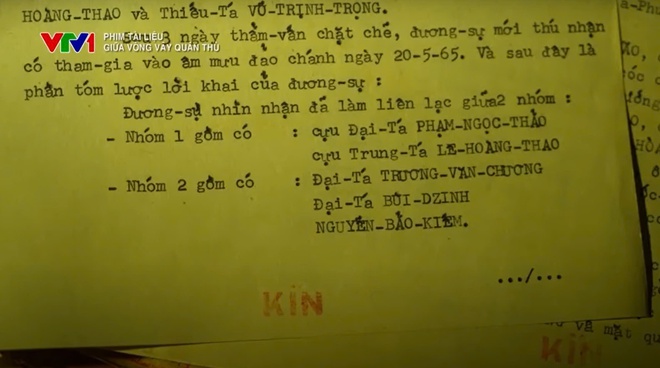 HOÀNG-THAO và Thiếu-Tá VÕ-TRỊNH-TRỌNG.
VTV1 PHIM TÀI LIỆU
GIỮA VÒNG VÂY QUÂN THÙ
3 ngày thẩm-vấn chặt chẽ, đương-sự mới thú nhận
có tham-gia vào âm mưu đảo chánh ngày 20-5-65. Và sau đây là
phần tóm lược lời khai của đương-sự :
Đương-sự nhìn nhận đã làm liên lạc giữa2 nhóm :
- Nhóm 1 gồm có : cựu Đại-Tá PHẠM-NGỌC-THẢO
cựu Trung-Tá LE-HOANG-THAO
- Nhóm 2 gồm có : Đại-Tá TRƯƠNG-VAN-CHƯƠNG
Đại-Tá BÙI-DZINH
NGUYỄN-BẢO-KIẾM.
.../...
KÍN
KÍN
và mặt